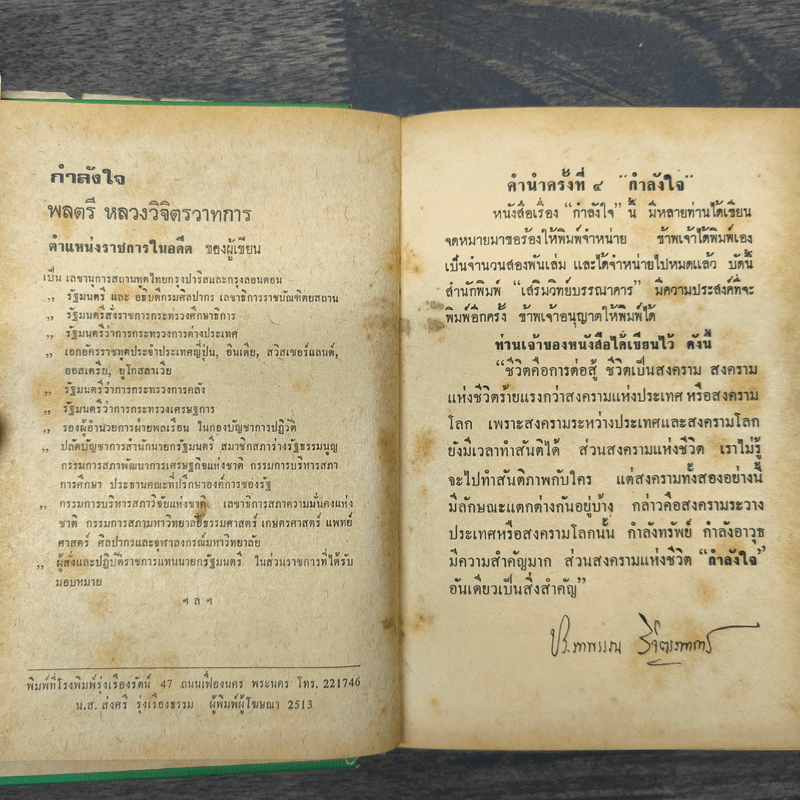 กำลังใจ
พลตรี หลวงวิจิตรวาทการ
ตำแหน่งราชการในอดีต ของผู้เขียน
เป็น เลขานุการสถานทูตไทยกรุงปารีสและกรุงลอนดอน
„ รัฐมนตรี และ อธิบดีกรมศิลปากร เลขาธิการราชบัณฑิตยสถาน
„ รัฐมนตรีสั่งราชการกระทรวงศึกษาธิการ
„ รัฐมนตรีว่าการกระทรวงการต่างประเทศ
„ เอกอัครราชทูตประจำประเทศญี่ปุ่น, อินเดีย, สวิสเซอร์แลนด์,
ออสเตรีย, ยูโกสลาเวีย
„ รัฐมนตรีว่าการกระทรวงการคลัง
„ รัฐมนตรีว่าการกระทรวงเศรษฐการ
„ รองผู้อำนวยการฝ่ายพลเรือน ในกองบัญชาการปฏิวัติ
„ ปลัดบัญชาการสำนักนายกรัฐมนตรี สมาชิกสภาร่างรัฐธรรมนูญ
กรรมการสภาพัฒนาการเศรษฐกิจแห่งชาติ กรรมการบริหารสภา
การศึกษา ประธานคณะที่ปรึกษาองค์การของรัฐ
„ กรรมการบริหารสภาวิจัยแห่งชาติ เลขาธิการสภาความมั่นคงแห่ง
ชาติ กรรมการสภามหาวิทยาลัยธรรมศาสตร์ เกษตรศาสตร์ แพทย์
ศาสตร์ ศิลปากรและจุฬาลงกรณ์มหาวิทยาลัย
„ ผู้สั่งและปฏิบัติราชการแทนนายกรัฐมนตรี ในส่วนราชการที่ได้รับ
มอบหมาย
ฯ ล ฯ
พิมพ์ที่โรงพิมพ์รุ่งเรืองรัตน์ 47 ถนนเฟื่องนคร พระนคร โทร. 221746
น.ส. ส่งศรี รุ่งเรียงธรรม ผู้พิมพ์ผู้โฆษณา 2513
คำนำครั้งที่ ๔ "กำลังใจ"
หนังสือเรื่อง "กำลังใจ" นี้ มีหลายท่านได้เขียน
จดหมายมาขอร้องให้พิมพ์จำหน่าย ข้าพเจ้าได้พิมพ์เอง
เป็นจำนวนสองพันเล่ม และได้จำหน่ายไปหมดแล้ว บัดนี้
สำนักพิมพ์ "เสริมวิทย์บรรณาคาร" มีความประสงค์ที่จะ
พิมพ์อีกครั้ง ข้าพเจ้าอนุญาตให้พิมพ์ได้
ท่านเจ้าของหนังสือได้เขียนไว้ ดังนี้
"ชีวิตคือการต่อสู้ ชีวิตเป็นสงคราม สงคราม
แห่งชีวิตร้ายแรงกว่าสงครามแห่งประเทศ หรือสงคราม
โลก เพราะสงครามระหว่างประเทศและสงครามโลก
ยังมีเวลาทำสันติได้ ส่วนสงครามแห่งชีวิต เราไม่รู้
จะไปทำสันติภาพกับใคร แต่สงครามทั้งสองอย่างนี้
มีลักษณะแตกต่างกันอยู่บ้าง กล่าวคือสงครามระวาง
ประเทศหรือสงครามโลกนั้น กำลังทรัพย์ กำลังอาวุธ
มีความสำคัญมาก ส่วนสงครามแห่งชีวิต "กำลังใจ"
อันเดียวเป็นสิ่งสำคัญ"